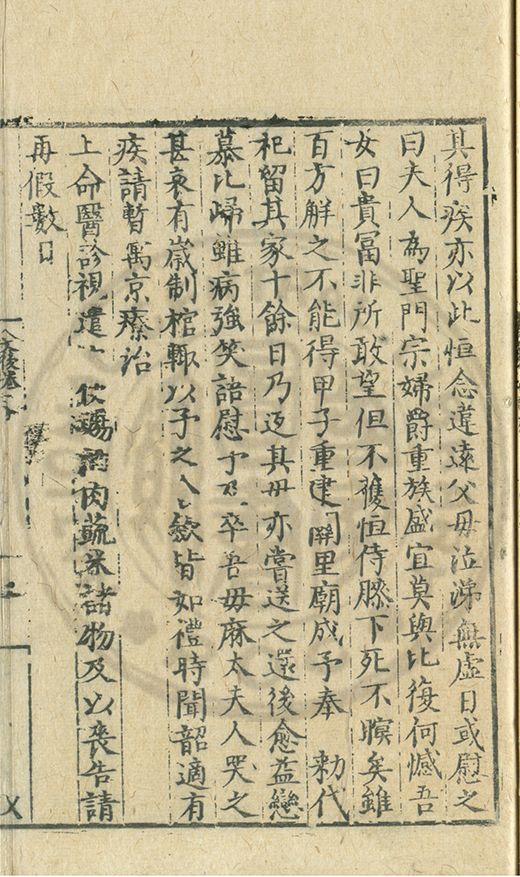 其得疾亦以此恒念違遠父母泣涕無虛日或慰之
曰夫人為聖門宗婦爵重族盛宜莫與比復何憾吾
女曰貴冨非所敢望但不獲恒侍膝下死不瞑矣雖
百方解之不能得甲子重建闕里廟成予奉 勑代
祀留其家十餘日乃返其母亦嘗送之還後愈益戀
慕比歸雖病強笑語慰予及卒吾母麻太夫人哭之
甚哀有歲制棺輙以予之入歛皆如禮時聞韶適有
疾請暫寓京療治
上命醫診視遣 賜酒肉蔬米諸物及以喪告請
再假數日